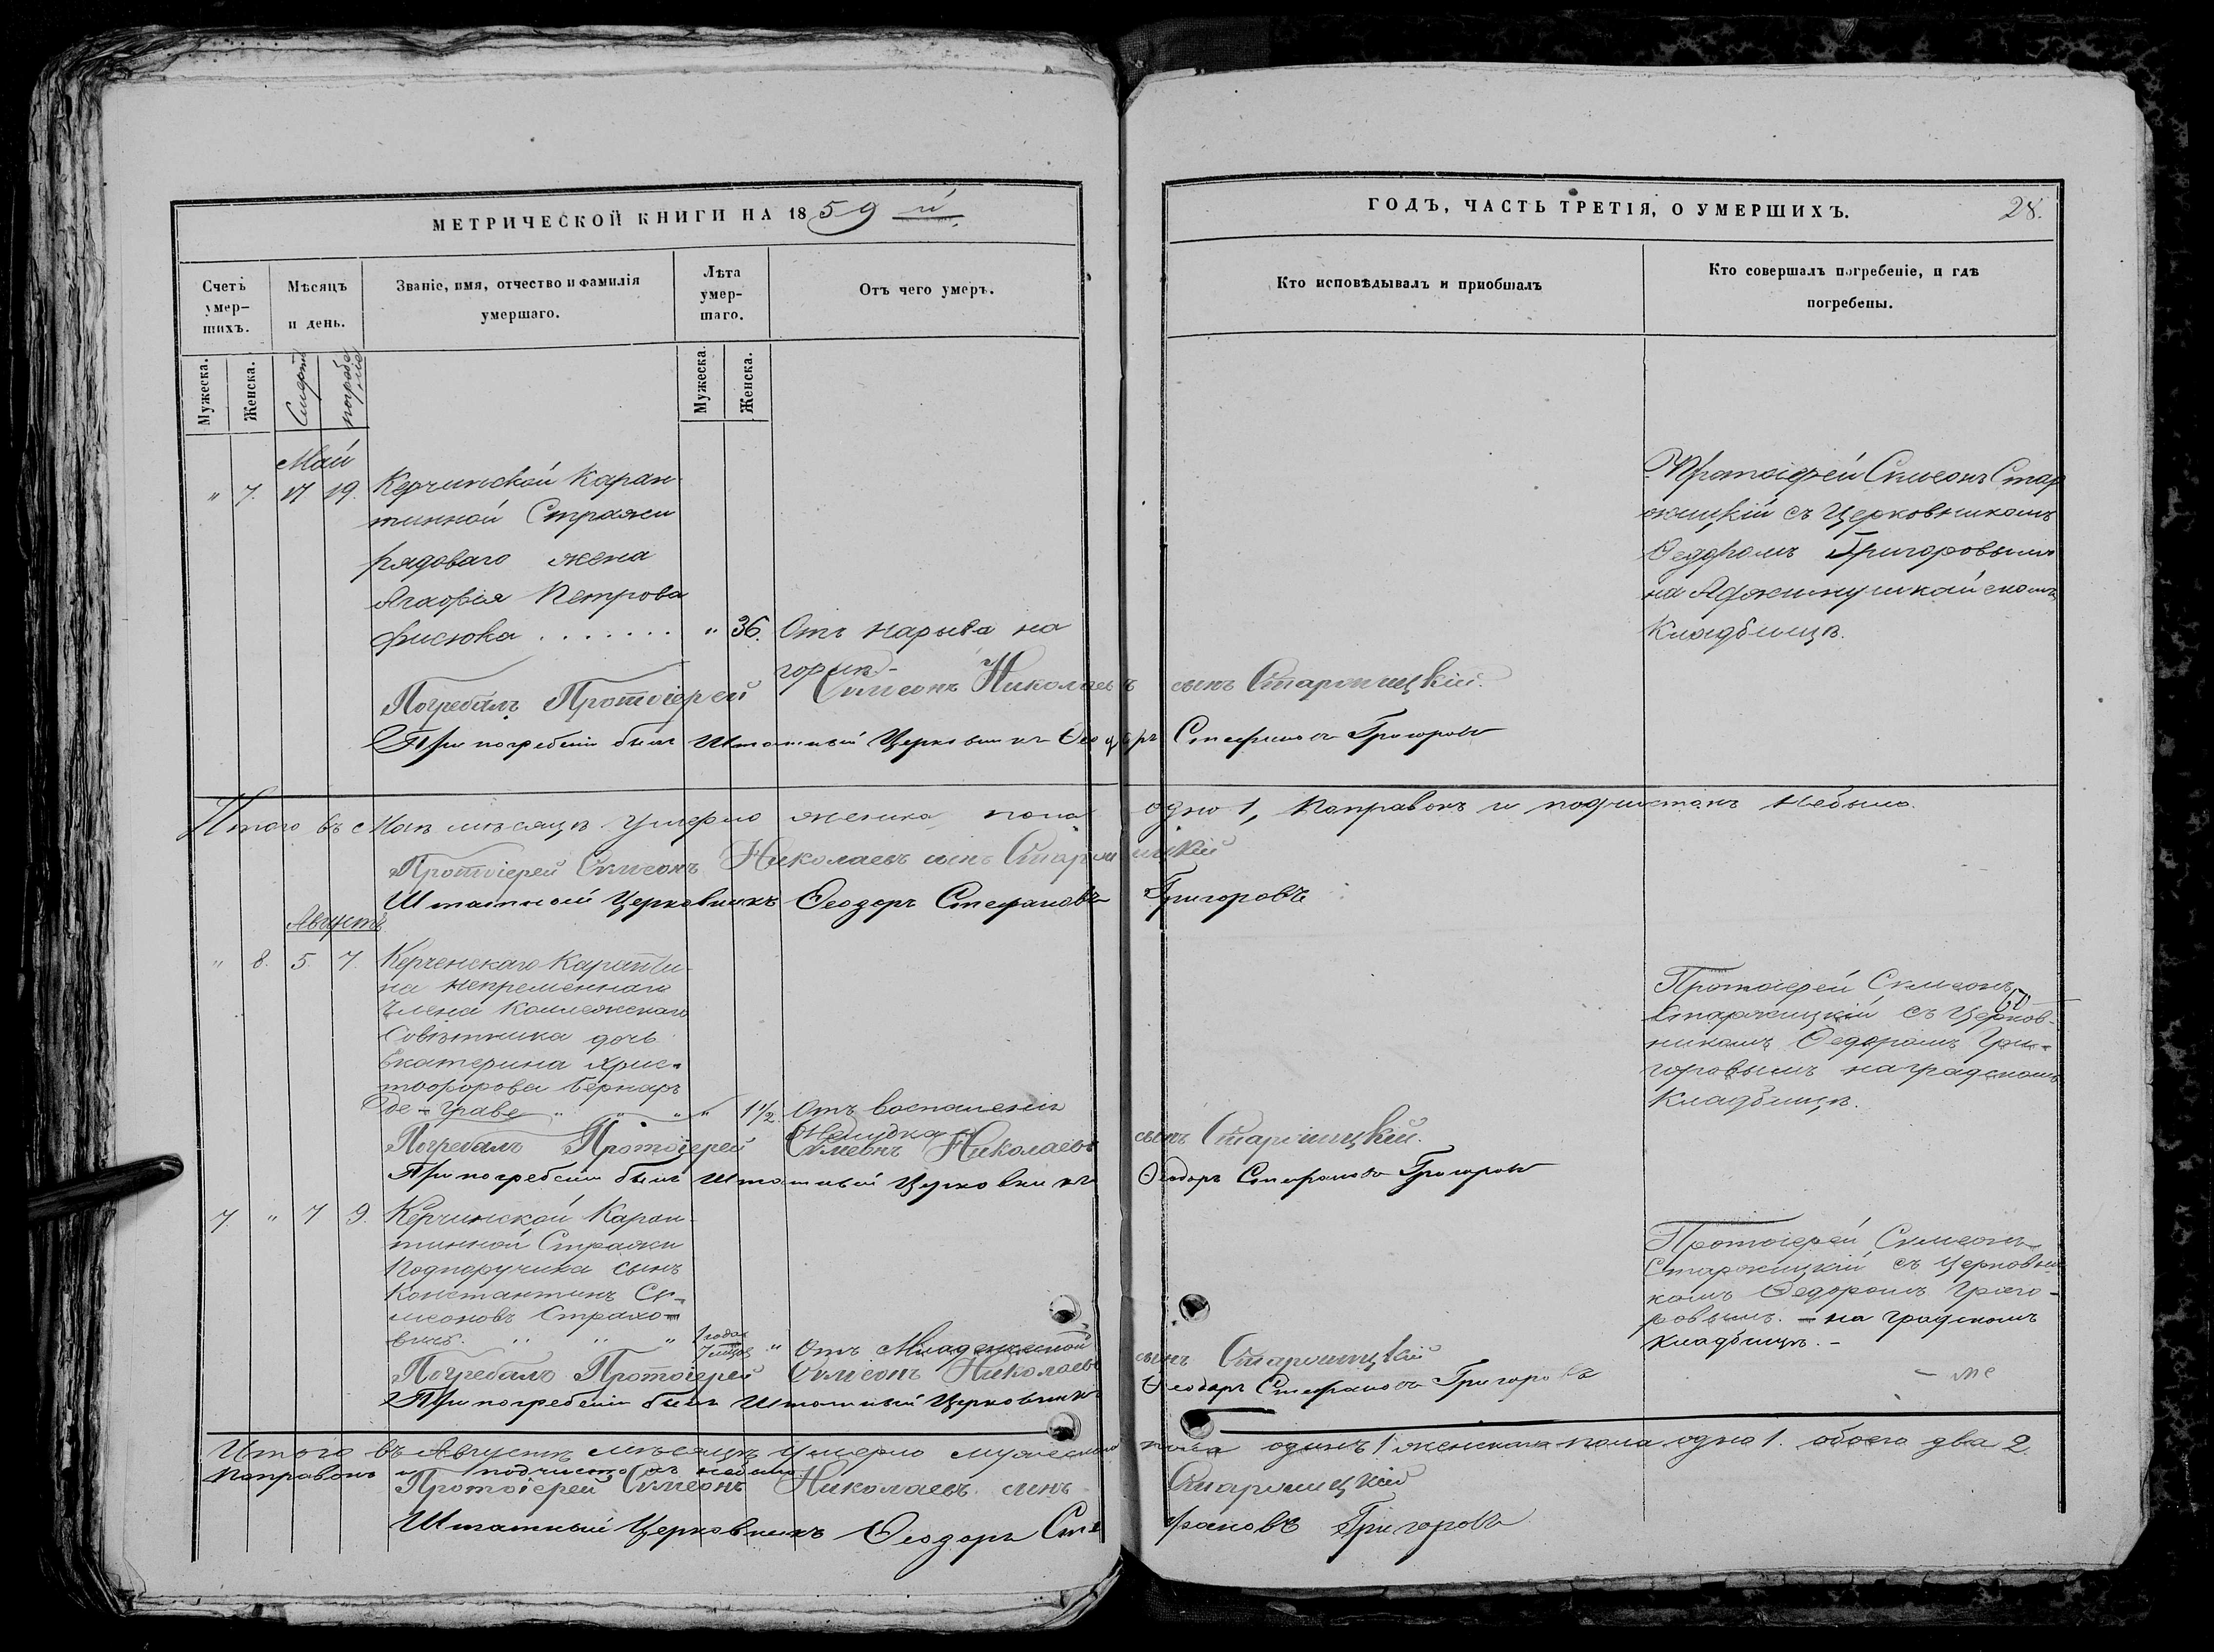 МЕТРИЧЕСКОЙ КНИГИ НА 1859 й
ГОДЪ, ЧАСТЬ ТРЕТІЯ, О УМЕРШИХЪ.
28.
Счетъ умер-шихъ.
Мѣсяцъ и день.
Званіе, имя, отчество и фамилія умершаго.
Лѣта умер-шаго.
Отъ чего умеръ.
Кто исповѣдывалъ и пріобщалъ
Кто совершалъ погребеніе, и гдѣ погребены.
Мужеска.
Женска.
Смерти
погребенія
Мужеска
Женска.
Май
" 7. 17 19. Керчинской Каран
тинной Стражи
рядоваго жена
Агафія Петрова
" 36. Отъ нарыва на
горлѣ
Протоіерей Симеонъ Стар
жицкій съ Церковникомъ
Федоромъ Григоровымъ
на Аджимушкайскомъ
Кладбищѣ.
Погребалъ Протоіерей Симеонъ Николаевъ сынъ Старжицкій.
При погребеніи былъ Штатный Церковникъ Ѳеодоръ Стефановъ Григоровъ
Итого въ Маѣ мѣсяцѣ умерло женска пола одно 1, Поправокъ и подчистокъ небыло.
Протоіерей Симеонъ Николаевъ сынъ Старжицкій
Штатный Церковникъ Ѳеодоръ Стефановъ Григоровъ
Августъ
" 8. 5. 7. Керченскаго Каранти
на непременнаго
Члена Коллежскаго
Совѣтника дочь
Екатерина Хрис-
тофорова Бернаръ
де-Граве " " " " 1 1/2. Отъ воспаленія
желудка
Протоіерей Симеонъ
Старжицкій съ Церков-
никомъ Федоромъ Гри-
горовымъ на градскомъ
Кладбищѣ.
Погребалъ Протоіерей Симеонъ Николаевъ сынъ Старжицкій.
При погребеніи былъ Штатный Церковникъ Ѳеодоръ Стефановъ Григоровъ
7. " 7 9. Керчинской Каран-
тинной Стражи
Подпоручика сынъ
Константинъ Си-
меоновъ Страхо-
вичъ. " " " 1 года 7 мѣсяц. " Отъ Младенческой
Протоіерей Симеонъ
Старжицкій съ Церковни
комъ Федоромъ Григо-
ровымъ. - на градскомъ
кладбищѣ. -
Погребалъ Протоіерей Симеонъ Николаевъ сынъ Старжицкій
При погребеніи былъ Штатный Церковникъ Ѳеодоръ Стефановъ Григоровъ
Итого въ Августѣ мѣсяцѣ умерло мужеска пола одинъ 1 женскаго пола одно 1. обоего два 2.
Поправокъ и подчистокъ небыло
Протоіерей Симеонъ Николаевъ сынъ Старжицкій
Штатный Церковникъ Ѳеодоръ Стефановъ Григоровъ